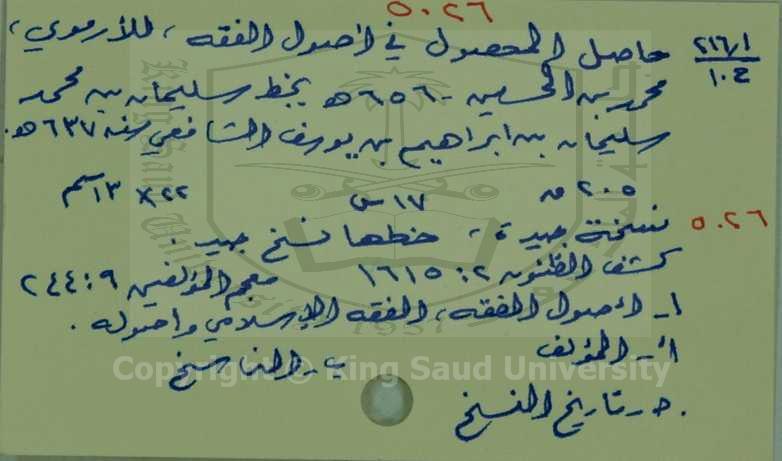 ٥٠٢٦
٢١٦/١ حاصل المحصول في أصول الفقه، للأرموي،
ح.١ محمد بن الحسين - ٦٥٦هـ بخط سليمان بن محمد
سليمان بن ابراهيم بن يوسف الشافعي سنه ٦٣٧هـ.
٢٠٥ ق ١٧ س ٢٢×١٣سم
٥٠٢٦ نسخة جيدة، خطها نسخ جيد.
كشف الظنون ٢: ١٦١٥ معجم المؤلفين ٩: ٢٤٤
١- أصول الفقه، الفقه الإسلامي وأصوله.
أ- المؤلف ب- الناسخ
ج- تاريخ النسخ.
Copyright © King Saud University
1957